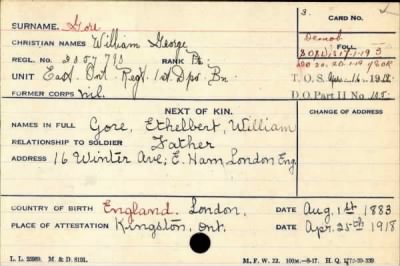 SURNAME. Gore
CHRISTIAN NAMES William George
REGL. No. RANK Pte.
UNIT East. Ont. Regt. 1st Dpo. Bn
FORMER CORPS Nil.
3.
CARD NO.
Demob
FOLL
T. O. S. Apr. 16 1918
D. O. Part II No. 105
NEXT OF KIN.
NAMES IN FULL Gore, Ethelbert, William
RELATIONSHIP TO SOLDIER Father
ADDRESS 16 Winter Ave; E. Ham, London Eng
COUNTRY OF BIRTH England. London, DATE Aug. 1st 1883
PLACE OF ATTESTATION Kingston, Ont. DATE Apr. 25th 1918
L. L. 25989. M. & D. 8191. M. F. W. 22. 100M.—8-17. H. Q. 1772-39-339